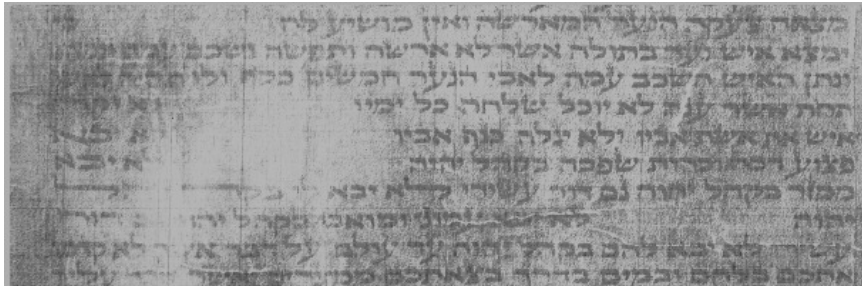 מצאה צעקה הנער המארשה ואין מושיע לה
ימצא איש נער בתולה אשר לא ארשה ותפשה ושכב עמה
ונתן האיש השכב עמה לאבי הנער חמשים כסף ולו
תחת אשר ענה לא יוכל שלחה כל ימיו
איש את אשת אביו ולא יגלה כנף אביו
פצוע וכרות שפכה בקהל יהוה לא יבא
ממזר בקהל יהוה גם דור עשירי לא יבא לו
יהוה לא יבא עמוני ומואבי בקהל יהוה דור
עשירי לא יבא להם בקהל יהוה עד עולם על דבר אשר לא קדמו
אתכם בלחם ובמים בדרך בצאתכם ממצרים ואשר שכר עליך